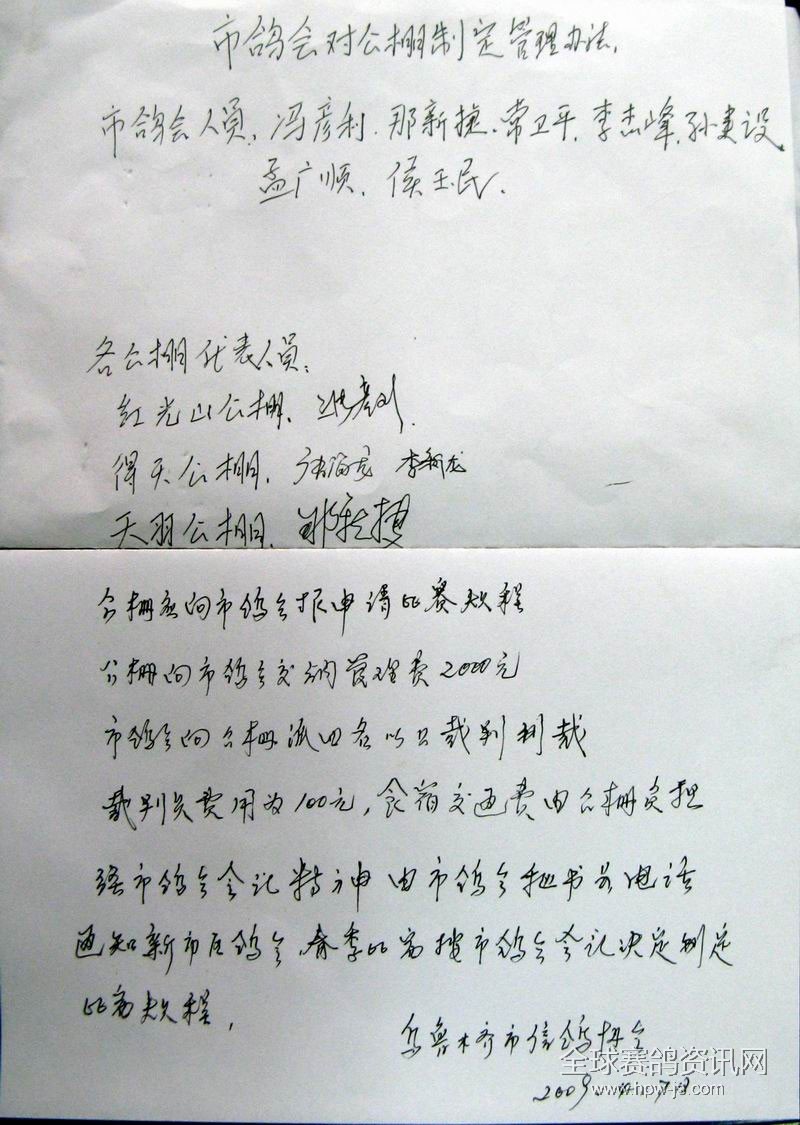 市鸽会对公棚制定管理办法.
市鸽会人员, 冯彦利. 那新捷. 常卫平. 李杰峰. 孙建设
孟广顺. 侯玉民.
各公棚代表人员:
红光山公棚.
得天公棚. 李新龙
天羽公棚. 那新捷
公棚应向市鸽会报申请比赛规程
公棚向市鸽会交纳管理费2000元
市鸽会向公棚派四名以上裁判判裁
裁判员费用为100元, 食宿交通费由公棚负担
经市鸽会会记精神由市鸽会秘书长电话
通知新市区鸽会, 春季比赛按市鸽会会记决定制定
比赛规程,
乌鲁木齐市信鸽协会
2009.
全球赛鸽资讯网
www.hpw-js.com